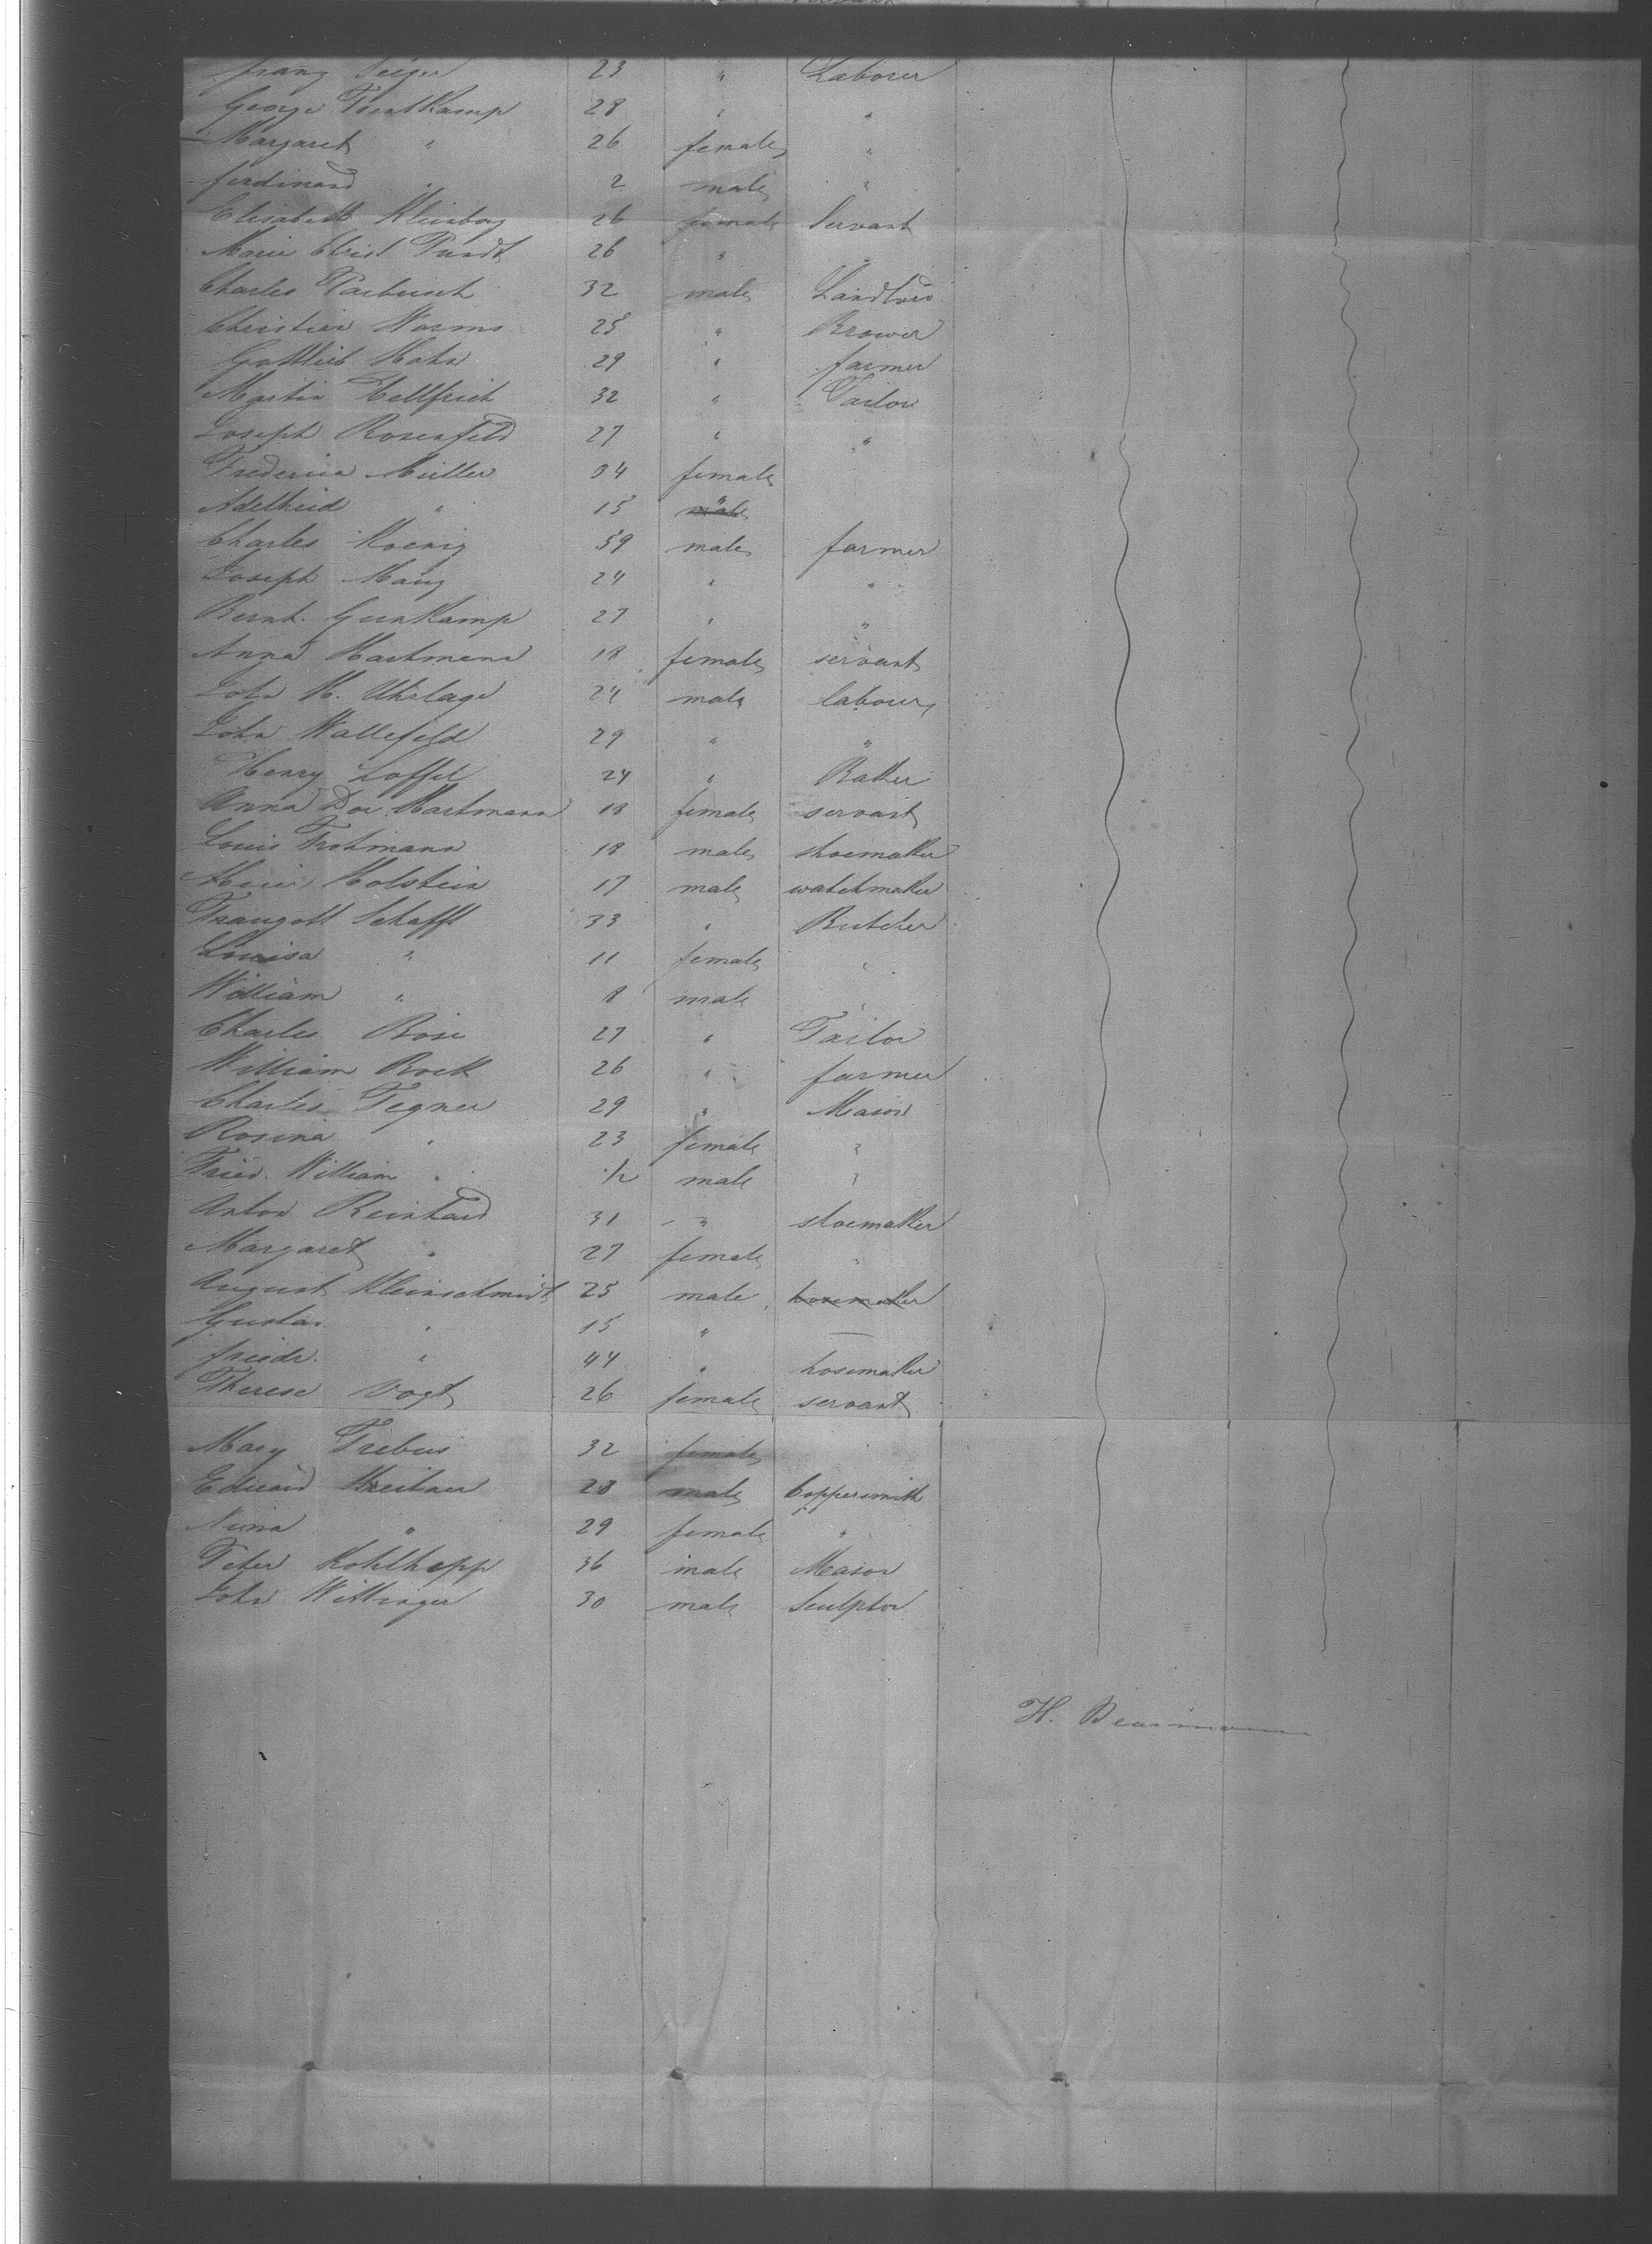 Franz Seeger 23 " Laborer
George Trentkamp 28 " "
Margaret " 26 female "
ferdinand " 2 male "
Elisabeth Kleinborg 26 female Servant
Marie Christ Pundt 26 " "
Charles Pasbusch 32 male Landlord
Christian Worms 25 " Brewer
Gottlieb Hahn 29 " farmer
Martin Hellfrich 32 " Tailor
Joseph Rosenfeld 27 " "
Frederica Müller 34 female
Adelheid " 15 "
Charles Koenig 39 male farmer
Joseph Mang 24 " "
Bernh. Gerkamp 27 " "
Anna Hartmann 18 female servant
John H. Uhrlage 24 male labourer
John Wallefeld 29 " "
Henry Loffel 24 " Baker
Anna Dor. Hartmann 18 female servant
Louis Trotmann 18 male shoemaker
Holstein 17 male watchmaker
Traugott Schafft 33 " Butcher
Louisa " 11 female "
William " 8 male "
Charles Rose 27 " Tailor
William Bock 26 " farmer
Charles Tegner 29 " Mason
Rosina " 23 female "
Fried. William " 1/2 male "
Anton Reinhard 31 " shoemaker
Margaret " 27 female "
August Kleinschmidt 25 male hosemaker
Gustav " 15 " —
friedr. " 44 " hosemaker
Therese Vogt 26 female servant
Mary Trebus 32 female
Edward Kreitner 28 male Coppersmith
Nina " 29 female "
Peter Kohlhepp 36 male Mason
John Wittinger 30 male Sculptor
H.